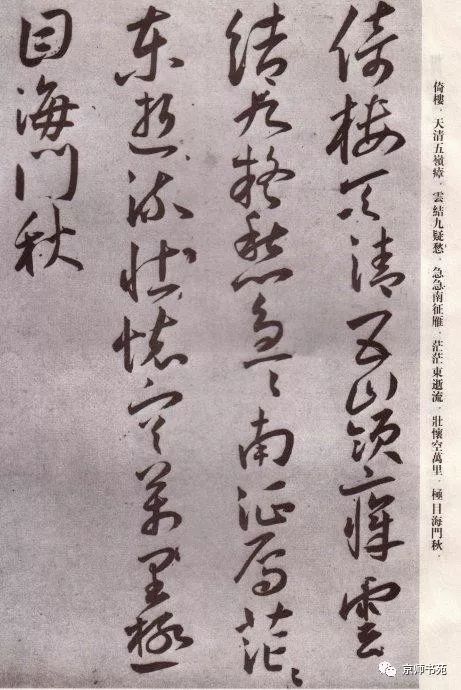 倚樓。天清五嶺瘴。雲結九疑愁。急急南征雁。茫茫東逝流。壯懷空萬里。極目海門秋。
倚樓天清五嶺瘴雲
結九疑愁急〻南征雁茫〻
東逝流壯懷空萬里極
目海門秋
京师书苑